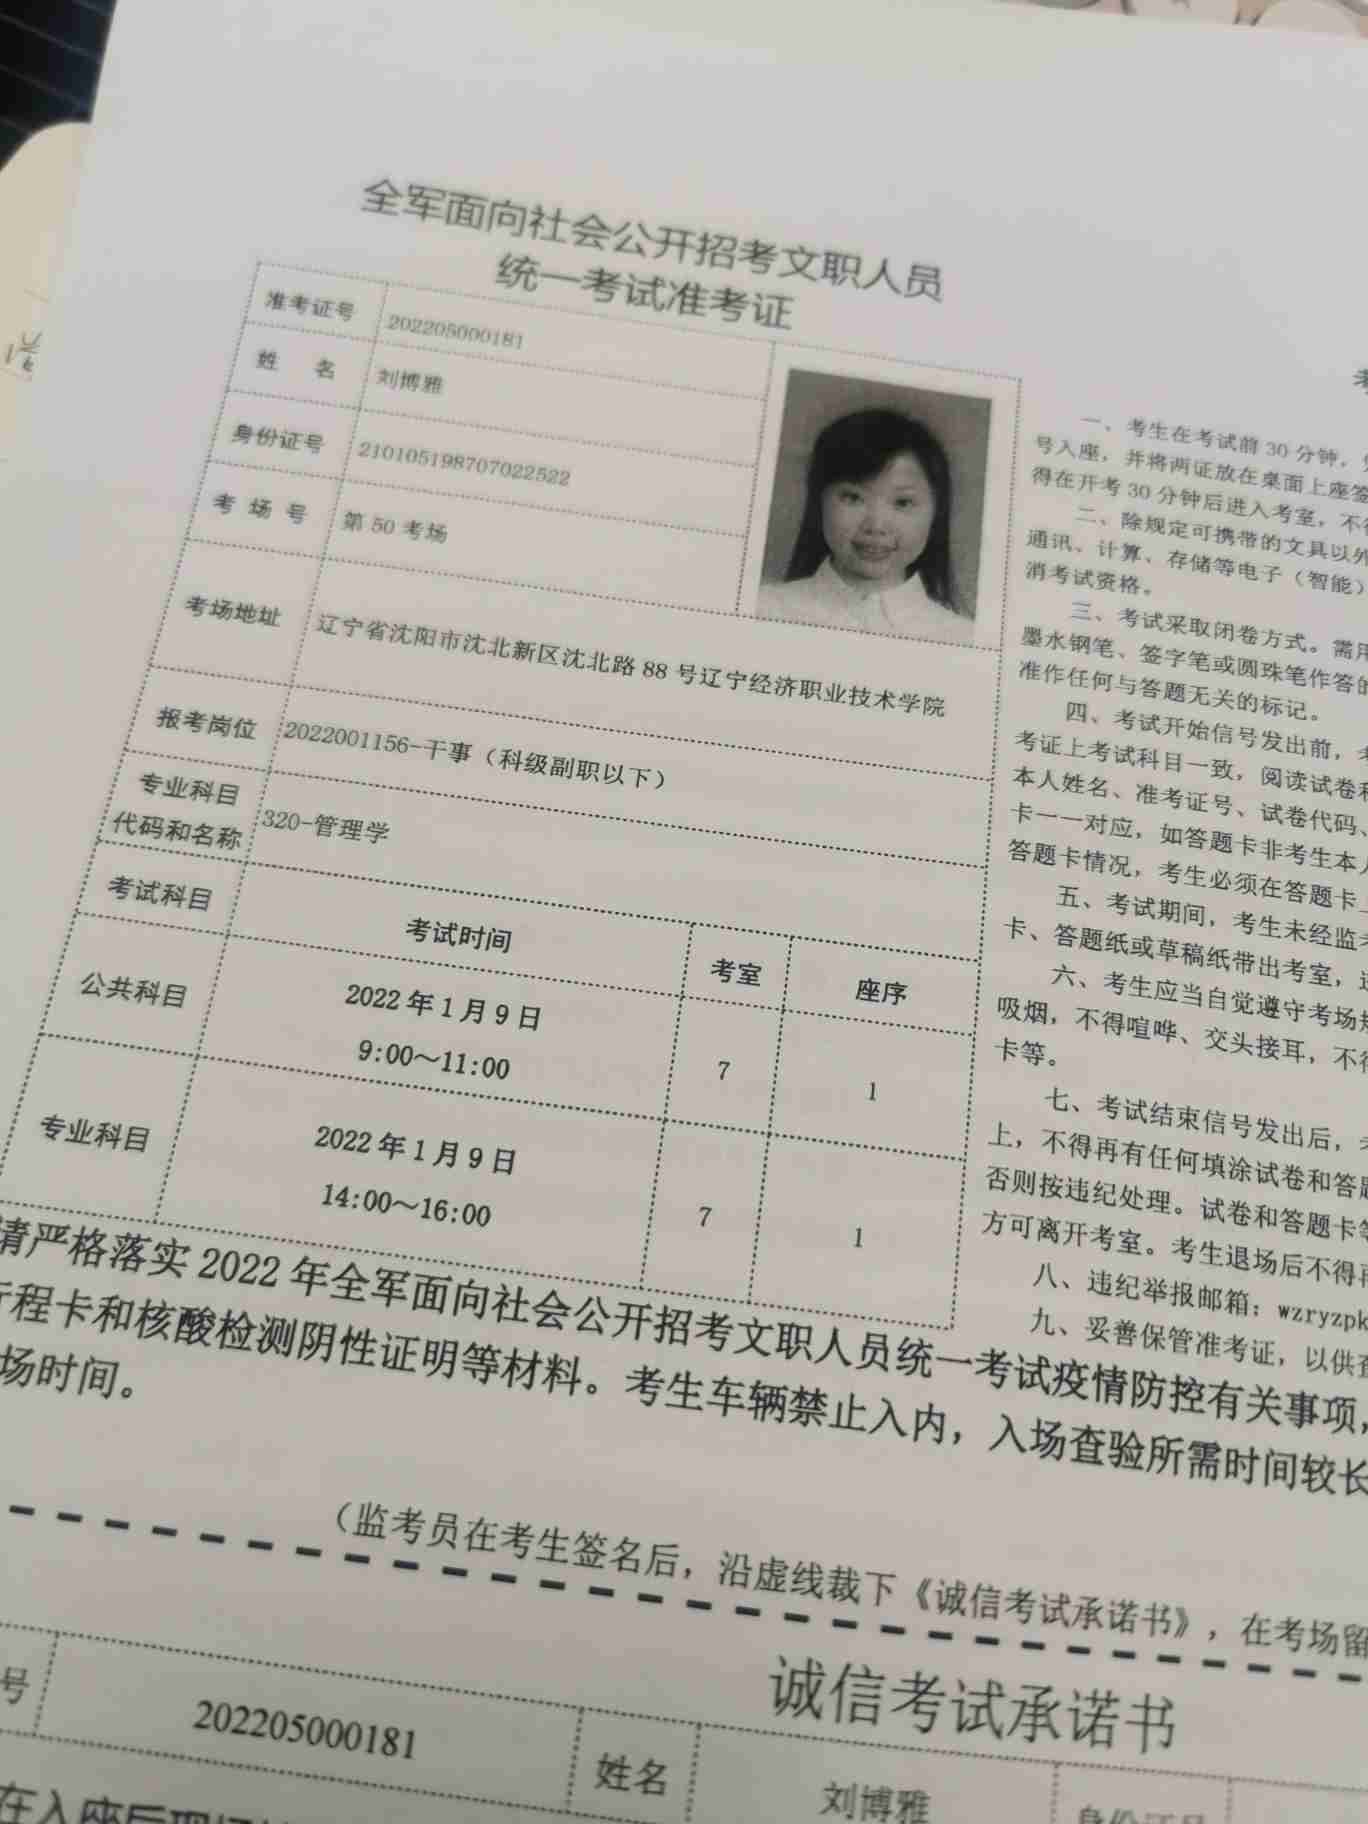 全军面向社会公开招考文职人员
统一考试准考证
准考证号 202205000181
姓 名 刘博雅
身份证号 210105198707022522
考 场 号 第 50 考场
考场地址 辽宁省沈阳市沈北新区沈北路 88 号辽宁经济职业技术学院
报考岗位 2022001156-干事（科级副职以下）
专业科目
代码和名称 320-管理学
考试科目 考试时间 考室 座序
公共科目 2022 年 1 月 9 日
9:00～11:00 7 1
专业科目 2022 年 1 月 9 日
14:00～16:00 7 1
一、考生在考试前 30 分钟，
号入座，并将两证放在桌面上座签
得在开考 30 分钟后进入考室，不得
二、除规定可携带的文具以外
通讯、计算、存储等电子（智能）
消考试资格。
三、考试采取闭卷方式。需用
墨水钢笔、签字笔或圆珠笔作答的
准作任何与答题无关的标记。
四、考试开始信号发出前，考
考证上考试科目一致，阅读试卷和
本人姓名、准考证号、试卷代码、
卡一一对应，如答题卡非考生本人
答题卡情况，考生必须在答题卡上
五、考试期间，考生未经监考
卡、答题纸或草稿纸带出考室，违
六、考生应当自觉遵守考场规
吸烟，不得喧哗、交头接耳，不得
卡等。
七、考试结束信号发出后，考
上，不得再有任何填涂试卷和答题
否则按违纪处理。试卷和答题卡等
方可离开考室。考生退场后不得再
八、违纪举报邮箱：wzryzpk
九、妥善保管准考证，以供查
请严格落实 2022 年全军面向社会公开招考文职人员统一考试疫情防控有关事项，
行程卡和核酸检测阴性证明等材料。考生车辆禁止入内，入场查验所需时间较长
场时间。
（监考员在考生签名后，沿虚线裁下《诚信考试承诺书》，在考场留
诚信考试承诺书
号 202205000181 姓名 刘博雅 身份证号